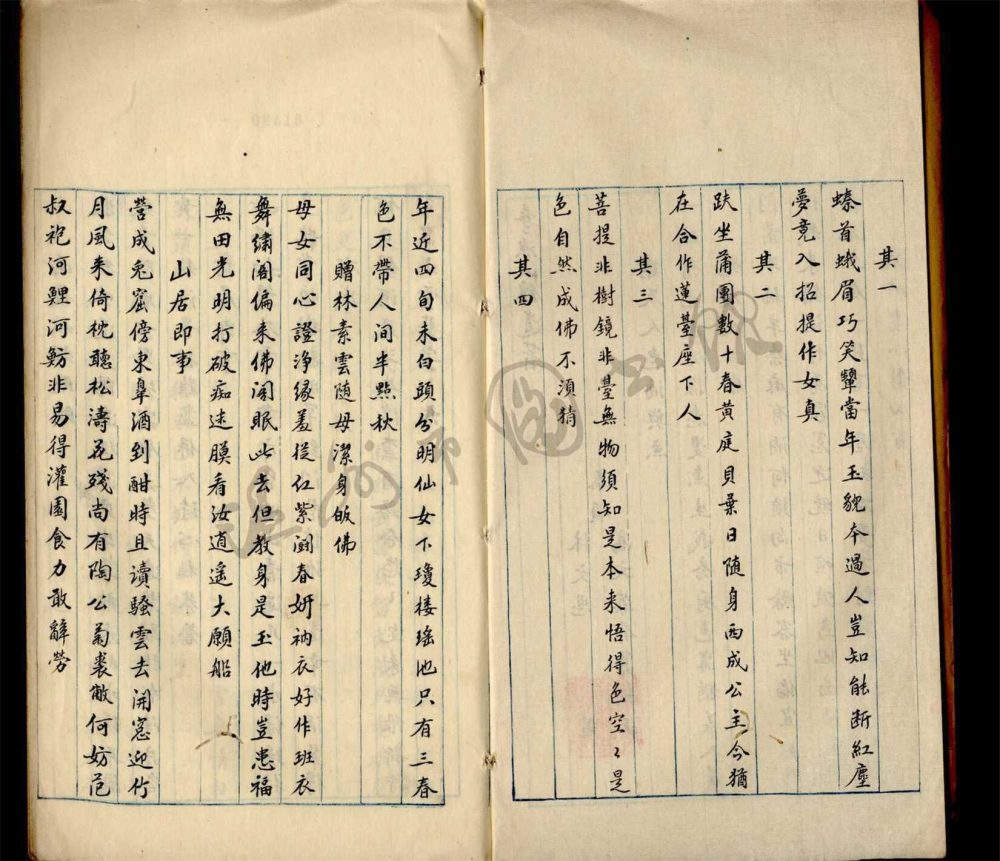 其一
螓首蛾眉巧笑顰當年玉貌本過人豈知能斷紅塵
夢竟入招提作女真
其二
趺坐蒲團數十春黃庭貝葉日随身西成公主今猶
在合作蓮臺座下人
其三
菩提非樹鏡非臺無物須知是本来悟得色空〻是
色自然成佛不須猜
其四
年近四旬未白頭分明仙女下瓊樓瑶池只有三春
色不帶人间半點秋
贈林素雲随母潔身皈佛
母女同心證净緣羞従红紫鬪春妍衲衣好作班衣
舞繡阁偏来佛阁眠此去但教身是玉他時豈患福
無田光明打破痴迷膜看汝逍遥大願船
山居即事
營成兔窟傍東皋酒到酣時且讀騷雲去開窓迎竹
月風来倚枕聽松濤花殘尚有陶公菊裘敝何妨范
叔袍河鯉河魴非易得灌園食力敢辭勞